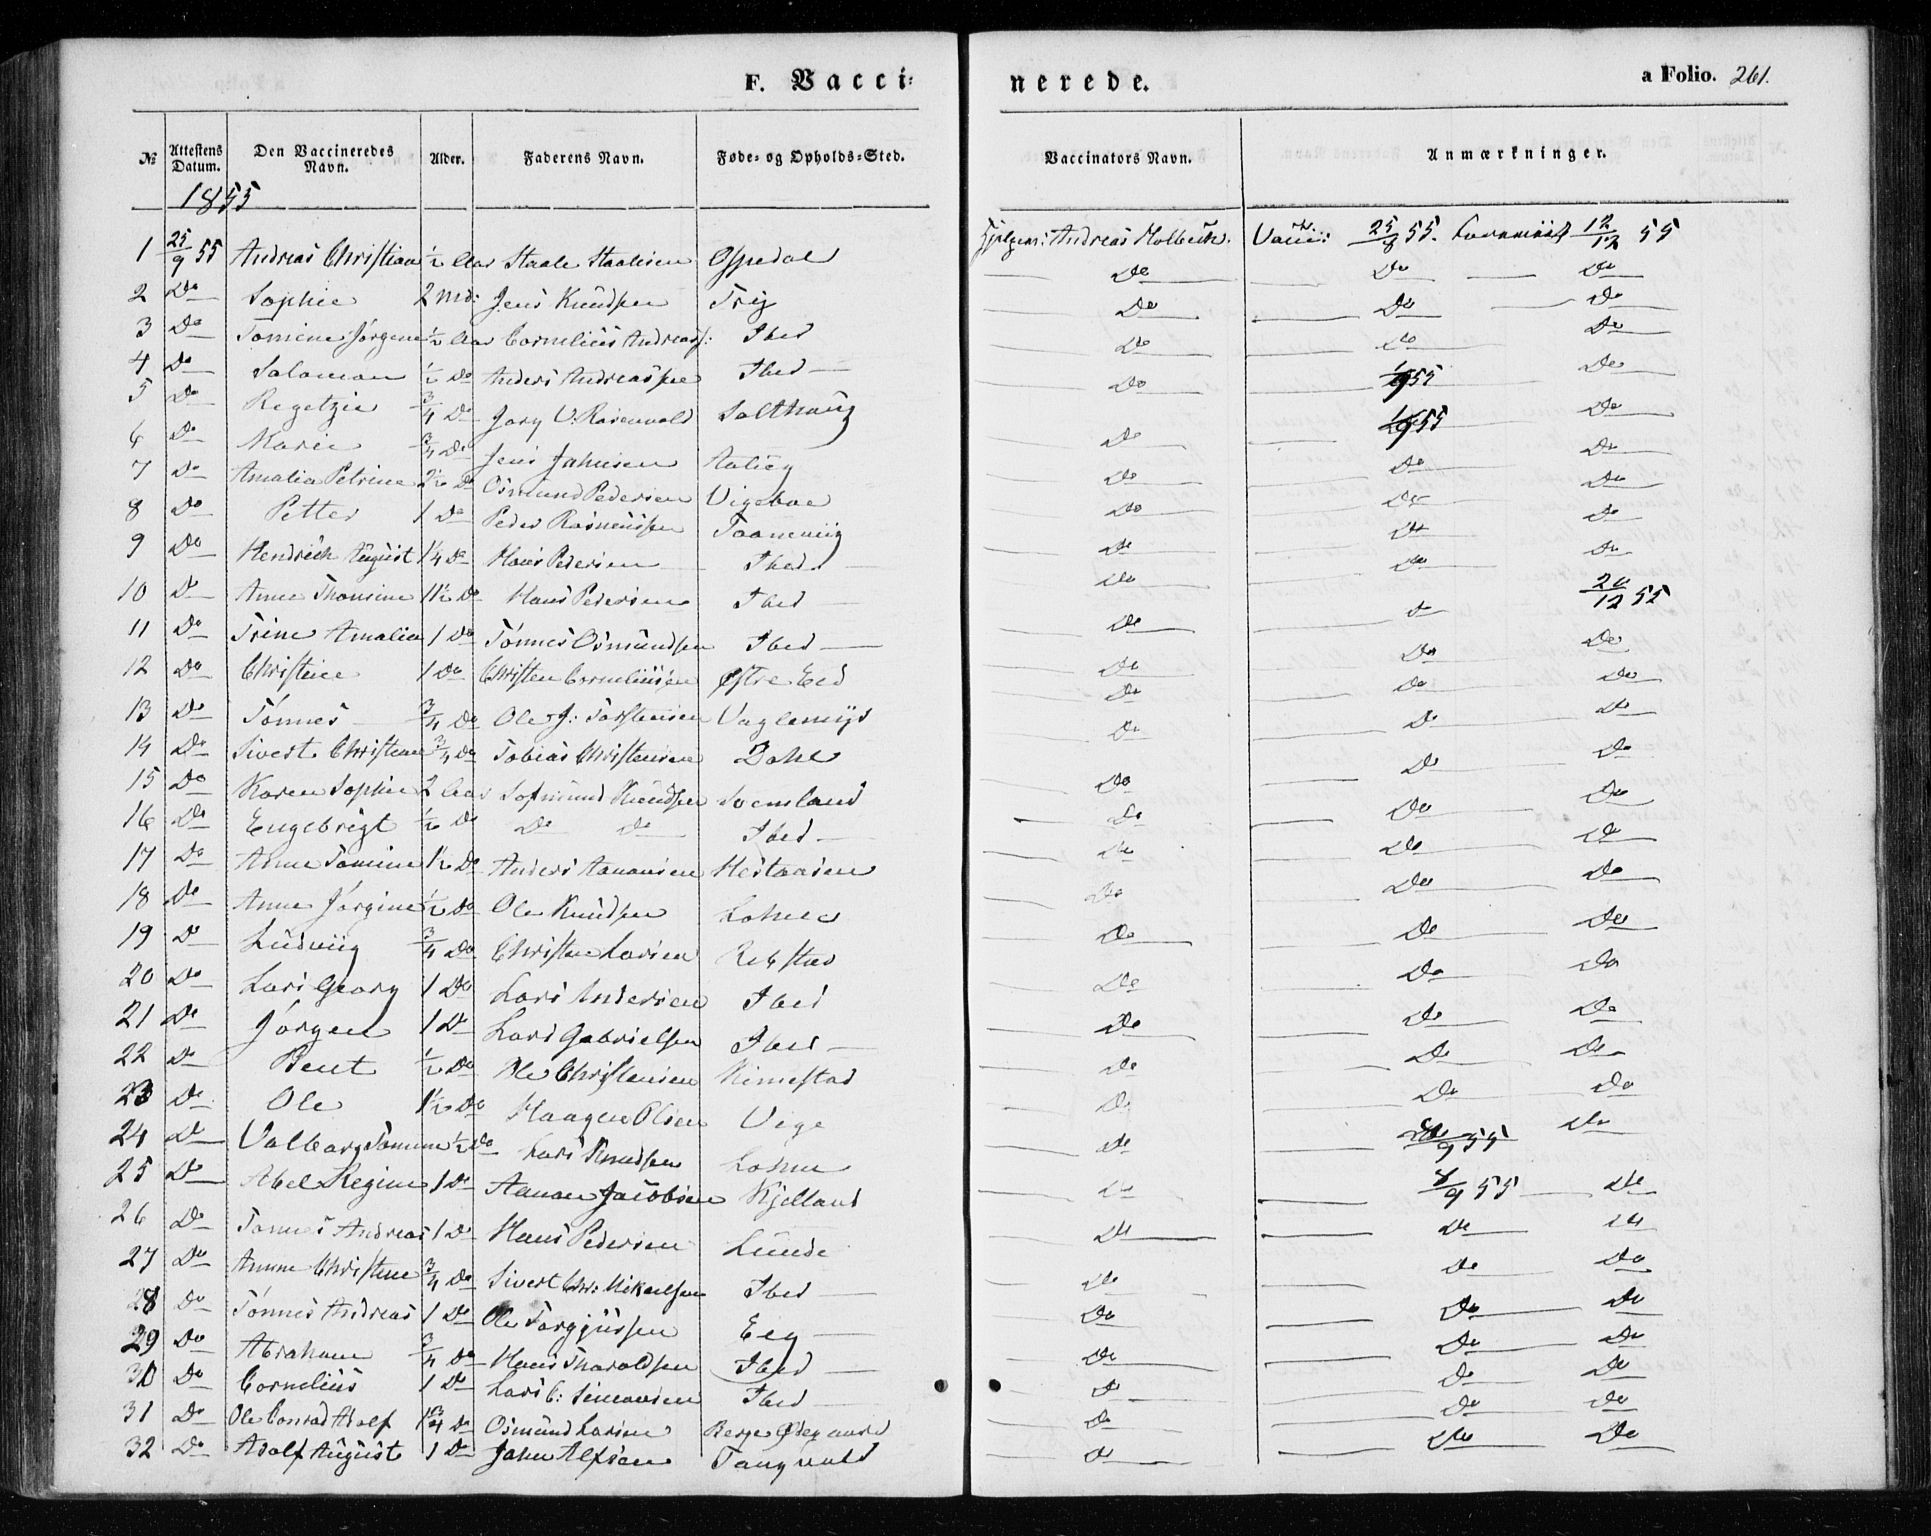 F. Vacci=
nerede.
a Folio. 261.
№ Attestens Datum. Den Vaccineredes Navn. Alder. Faderens Navn. Føde= og Opholds=Sted. Vaccinators Navn. Anmærkninger.
1855
1 25/9 55 Andreas Christian ½ Aar Staale Staalesen Ospedal Andreas Holbech. Vacc: 25/8 55. 12/12 55
2 Do Sophie 2 Md: Jens Knudsen Try Do Do Do
3 Do Tomine Jørgine ½ Aar Cornelius Andreass: Ibed Do Do Do
4 Do Salomon ½ Do Anders Andreassen Ibed Do Do Do
5 Do Regetzie ¾ Do Jørg V. Rosenvold Salthaug Do 1/9 55 Do
6 Do Marie ¾ Do Jens Johnsen Do 1/9 55 Do
7 Do Amalia Petrine 2½ Do Osmund Pedersen Vigeboe Do Do Do
8 Do Petter 1 Do Peder Rasmussen Do Do Do
9 Do Hendrich August 1¼ Do Hans Pedersen Ibed Do Do Do
10 Do Anne Thomine 11½ Do Hans Pedersen Ibed Do Do Do
11 Do Trine Amalia 1 Do Tønnes Osmundsen Ibed Do Do 20/12 55
12 Do Christine 1 Do Christen Corneliussen Østre Eed Do Do Do
13 Do Tønnes ¾ Do Ole J: Torstensen Do Do Do
14 Do Sivert Christian ¾ Do Tobias Christensen Dahl Do Do Do
15 Do Karen Sophie 2 Aar Knudsen Svemland Do Do Do
16 Do Engebrigt ½ Do Do Do Ibed Do Do Do
17 Do Anne Tomine 1½ Do Anders Aanonsen Hestaasen Do Do Do
18 Do Anne Jørgine ½ Do Ole Knudsen Lohne Do Do Do
19 Do Ludvig ¾ Do Christen Larsen Rebstad Do Do Do
20 Do Lars Georg 1 Do Lars Andersen Ibed Do Do Do
21 Do Jørgen 1 Do Lars Gabrielsen Ibed Do Do Do
22 Do Bent ½ Do Ole Christensen Nimestad Do Do Do
23 Do Ole 1½ Do Haagen Olsen Vige Do Do Do
24 Do Valborg Tomine ½ Do Lars Knudsen Lohne Do 9 55 Do
25 Do Abel Regine 1 Do Aanon Jacobsen Kjelland Do 8/9 55 Do
26 Do Tønnes Andreas 1 Do Hans Pedersen Lunde Do Do Do
27 Do Anne Christine ¾ Do Sivert Chr: Mikaelsen Ibed Do Do Do
28 Do Tønnes Andreas 1 Do Ole Torgjussen Eeg Do Do Do
29 Do Abraham ¾ Do Hans Tharaldsen Ibed Do Do Do
30 Do Cornelius 1 Do Lars C: Simonsen Ibed Do Do Do
31 Do Ole Conrad Adolf 1¾ Do Osmund Larsen Berge Ødegaard Do Do Do
32 Do Adolf August 1 Do John Alfsen Tangvald Do Do Do